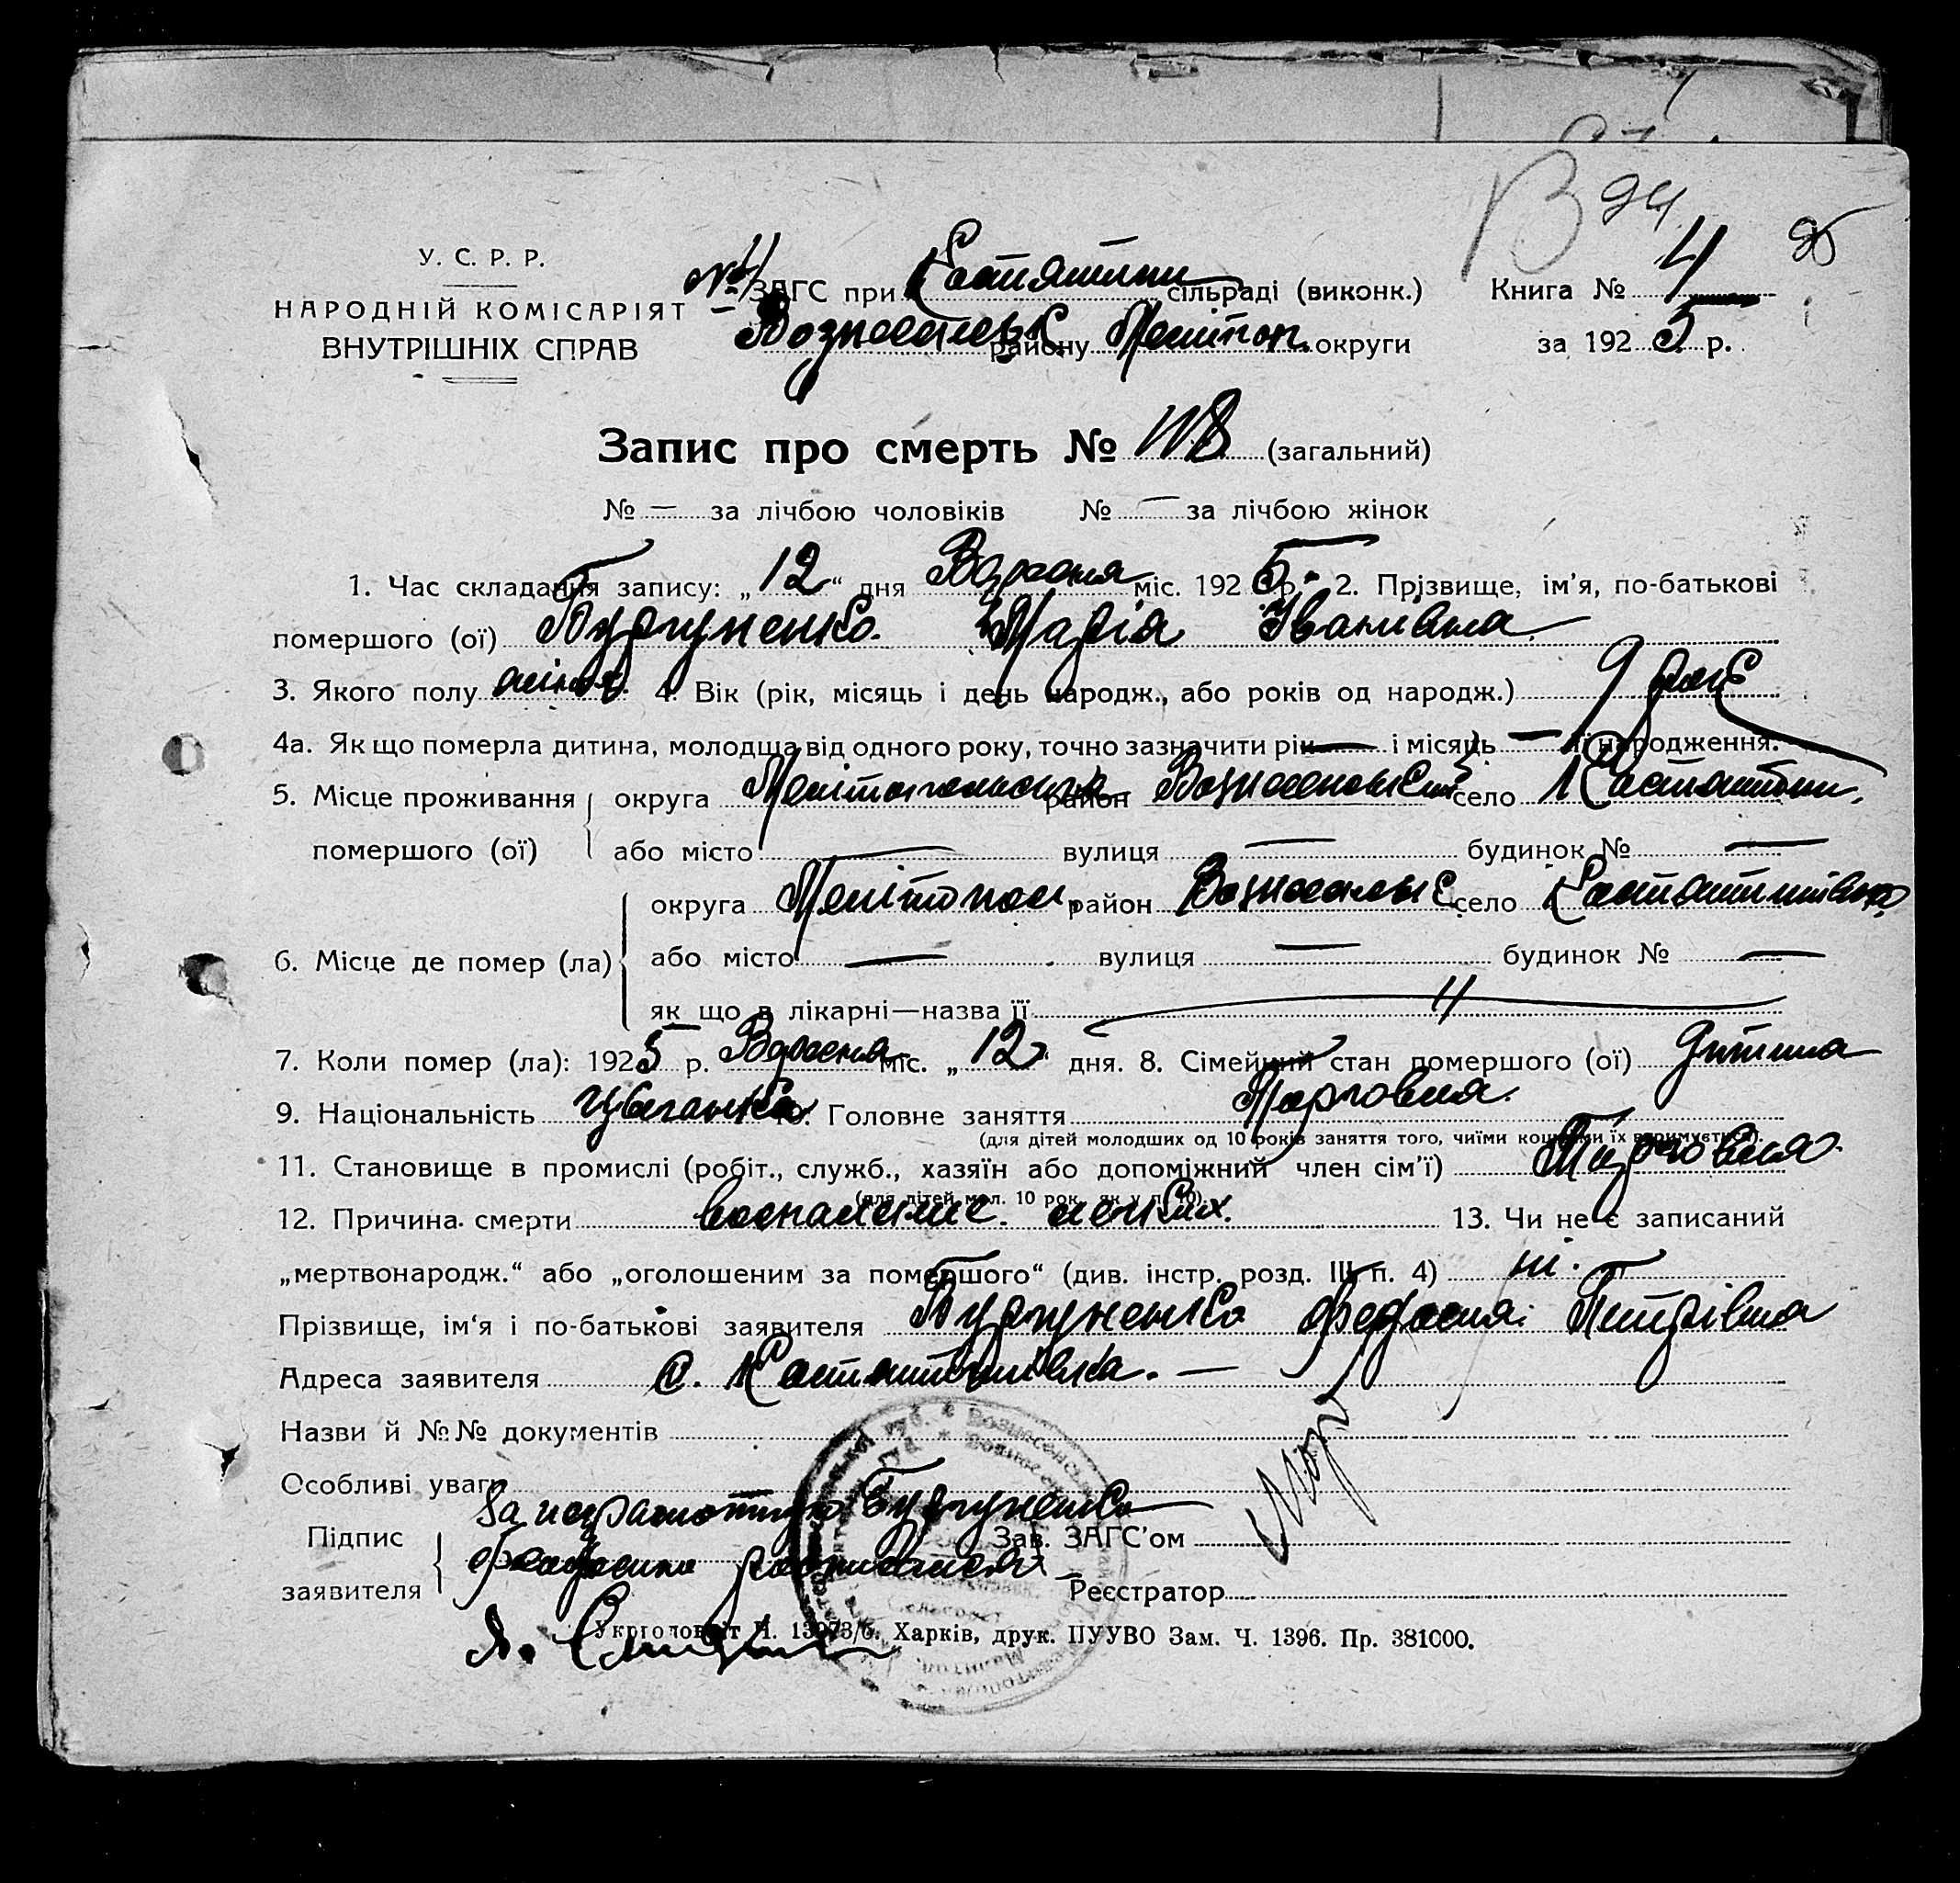 В 94
У. С. Р. Р.
НАРОДНІЙ КОМІСАРІЯТ
ВНУТРІШНІХ СПРАВ
№ 4 ЗАГС при Костянтин сільраді (виконк.)
Вознесенськ району Мелітоп. округи
Книга № 4
за 1925 р.
Запис про смерть № 118 (загальний)
№ — за лічбою чоловіків № — за лічбою жінок
1. Час складання запису: „12“ дня Вересня міс. 1925 р. 2. Прізвище, ім’я, по-батькові
помершого (ої) Бурлуненко Марія Іванівна
3. Якого полу жіноч. 4. Вік (рік, місяць і день народж., або років од народж.) 9 рок
4а. Як що померла дитина, молодша від одного року, точно зазначити рік — і місяць — її народження.
5. Місце проживання округа Мелітопольська район Вознесенський село Костянтин.
помершого (ої) або місто — вулиця — будинок № —
округа Мелітопол. район Вознесенськ село Костянтинівка
6. Місце де помер (ла) або місто — вулиця — будинок № —
як що в лікарні—назва її
7. Коли помер (ла): 1925 р. Вересня міс. „12“ дня. 8. Сімейний стан помершого (ої) Дитина
9. Національність Цыганка 10. Головне заняття Торговля.
(для дітей молодших од 10 років заняття того, чиїми коштами їх утримується).
11. Становище в промислі (робіт., служб., хазяїн або допоміжний член сім’ї) Торговля.
(для дітей мол. 10 рок. як у п. 10).
12. Причина смерти воспаление легких. 13. Чи не є записаний
„мертвонародж.“ або „оголошеним за помершого“ (див. інстр. розд. III п. 4) ні.
Прізвище, ім‘я і по-батькові заявителя Бурлуненко Петрівна
Адреса заявителя с. Костянтинівка. —
Назви й №№ документів
Особливі уваги
За неграмотную
Підпис
заявителя росписался
Зав. ЗАГС’ом
Реєстратор
Укрголовліт Ч. 13973/б. Харків, друк. ПУУВО Зам. Ч. 1396. Пр. 381000.